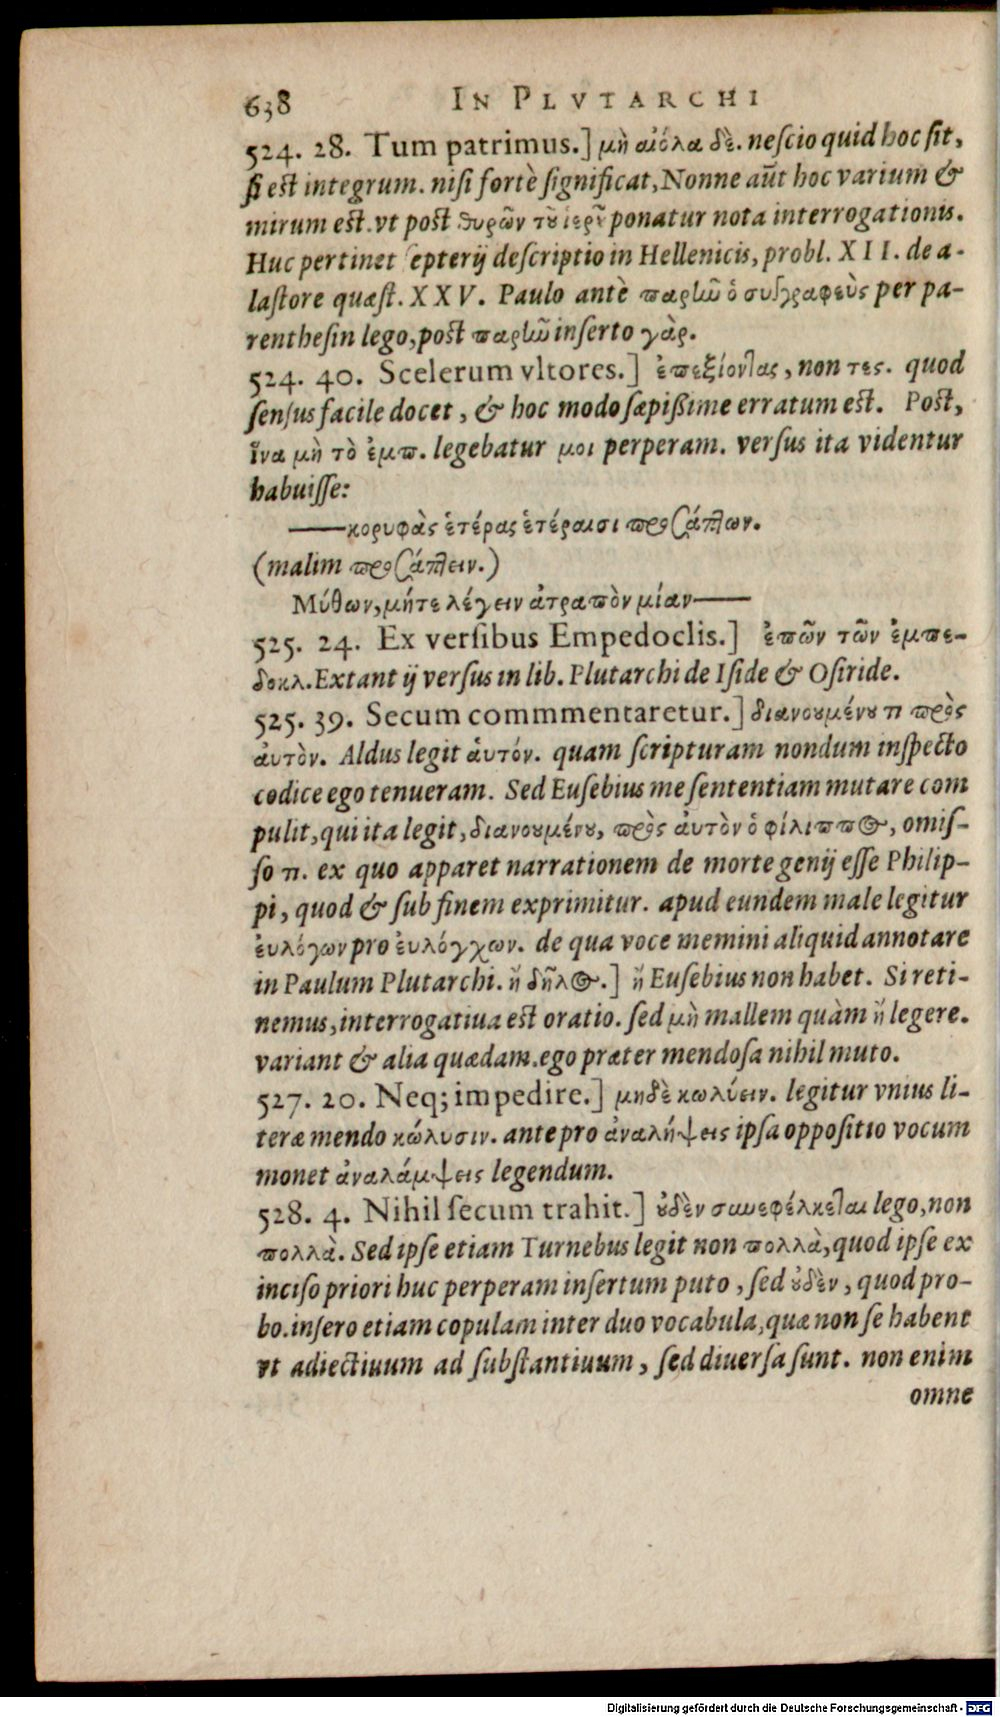 638 IN PLVTARCHI
524. 28. Tum patrimus.] μὴ αἰόλα δὲ. nescio quid hoc sit,
si est integrum. nisi fortè significat, Nonne aūt hoc varium &
mirum est. vt post θυρῶν τοῦ ἱεροῦ ponatur nota interrogationis.
Huc pertinet epterij descriptio in Hellenicis, probl. XII. de a-
lastore quæst. XXV. Paulo antè παρῶ ὁ συγγραφεὺς per pa-
renthesin lego, post παρῶ inserto γὰρ.
524. 40. Scelerum vltores.] ἐπεξίοντας, non τες. quod
sensus facile docet, & hoc modo sæpißime erratum est. Post,
ἵνα μὴ τὸ ἐμπ. legebatur μοι perperam. versus ita videntur
habuisse:
——κορυφὰς ἑτέρας ἑτέραισι προσάπτων.
(malim προσάπτειν.)
Μύθων, μήτε λέγειν ἀτραπὸν μίαν——
525. 24. Ex versibus Empedoclis.] ἐπῶν τῶν ἐμπε-
δοκλ. Extant ij versus in lib. Plutarchi de Iside & Osiride.
525. 39. Secum commmentaretur.] διανουμένου τι πρὸς
αὐτὸν. Aldus legit ἁυτόν. quam scripturam nondum inspecto
codice ego tenueram. Sed Eusebius me sententiam mutare com
pulit, qui ita legit, διανουμένου, πρὸς αὐτὸν ὁ φίλιππος, omis-
so τι. ex quo apparet narrationem de morte genij esse Philip-
pi, quod & sub finem exprimitur. apud eundem male legitur
ἐυλόγων pro ἐυλόγχων. de qua voce memini aliquid annotare
in Paulum Plutarchi. ἢ δῆλος.] ἢ Eusebius non habet. Si reti-
nemus, interrogatiua est oratio. sed μὴ mallem quàm ἢ legere.
variant & alia quædam. ego præter mendosa nihil muto.
527. 20. Neq; impedire.] μηδὲ κωλύειν. legitur vnius li-
teræ mendo κώλυσιν. ante pro ἀναλήψεις ipsa oppositio vocum
monet ἀναλάμψεις legendum.
528. 4. Nihil secum trahit.] οὐδὲν συνεφέλκεται lego, non
πολλὰ. Sed ipse etiam Turnebus legit non πολλὰ, quod ipse ex
inciso priori huc perperam insertum puto, sed οὐδὲν, quod pro-
bo. insero etiam copulam inter duo vocabula, quæ non se habent
vt adiectiuum ad substantiuum, sed diuersa sunt. non enim
omne
Digitalisierung gefördert durch die Deutsche Forschungsgemeinschaft - DFG